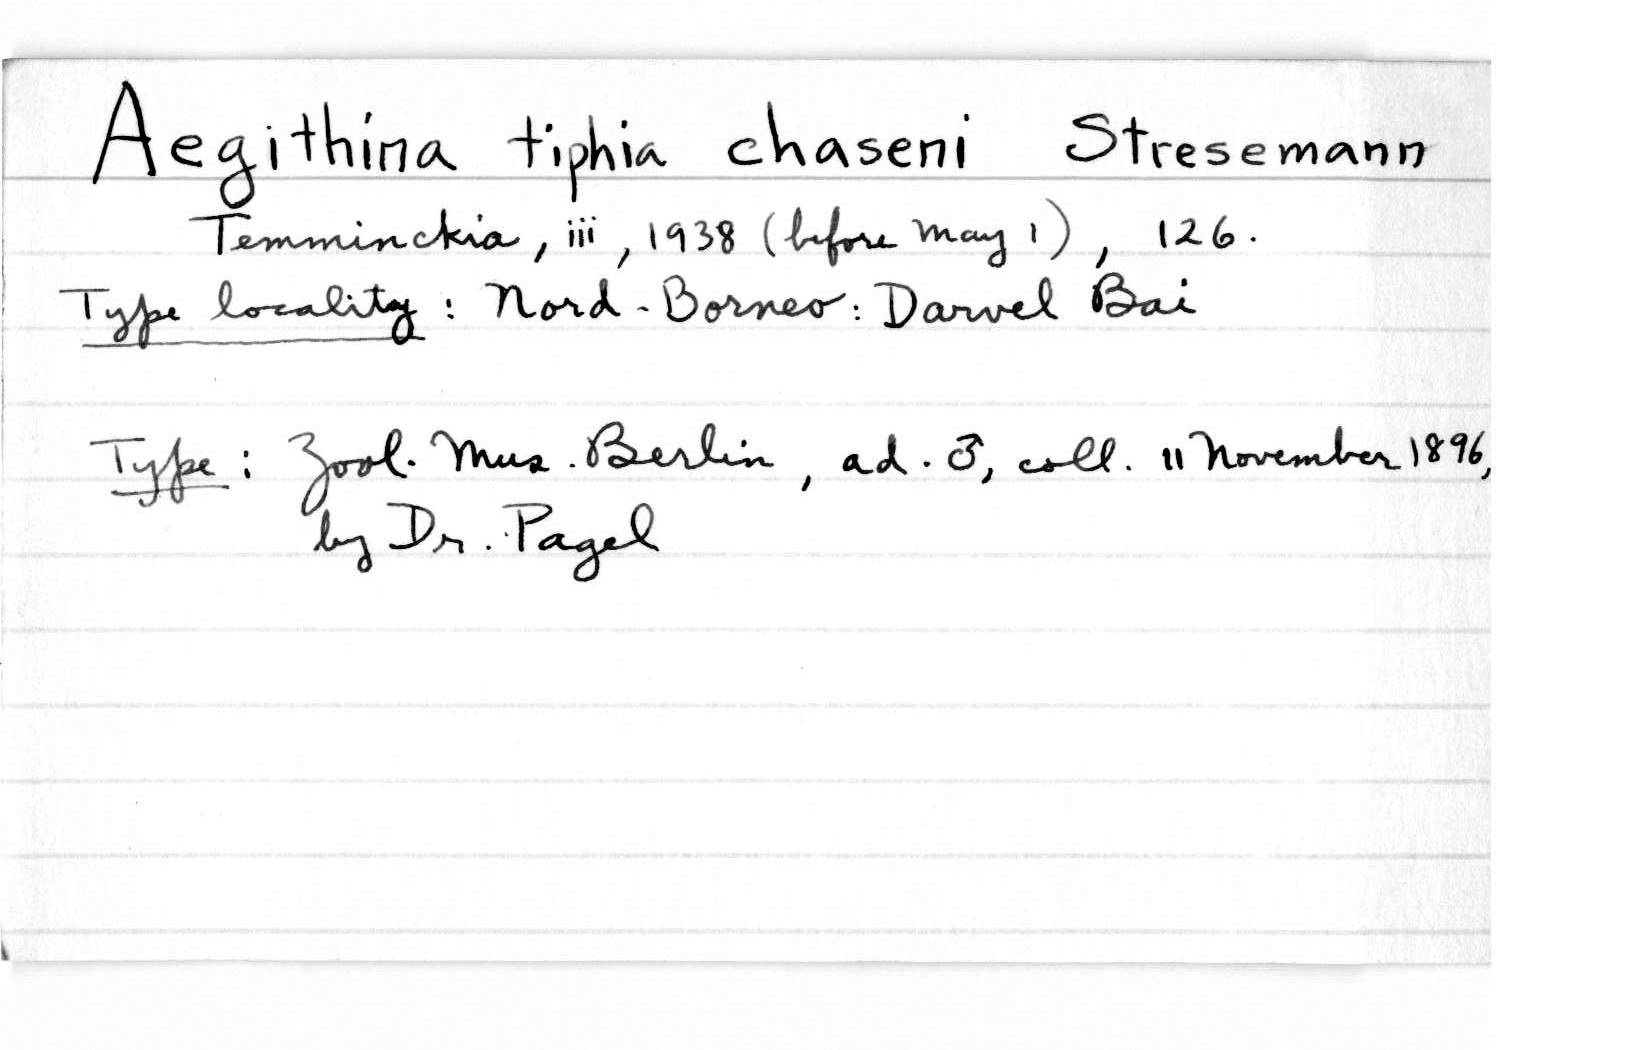 Aegithina tiphia chaseni Stresemann
Temminckia, iii, 1938 (before May 1), 126.
Type locality: Nord-Borneo: Darvel Bai
Type: Zool. Mus. Berlin, ad. ♂, coll. 11 November 1896,
by Dr. Pagel